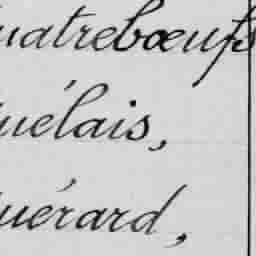 uatrebœufs
uélais,
uérard,